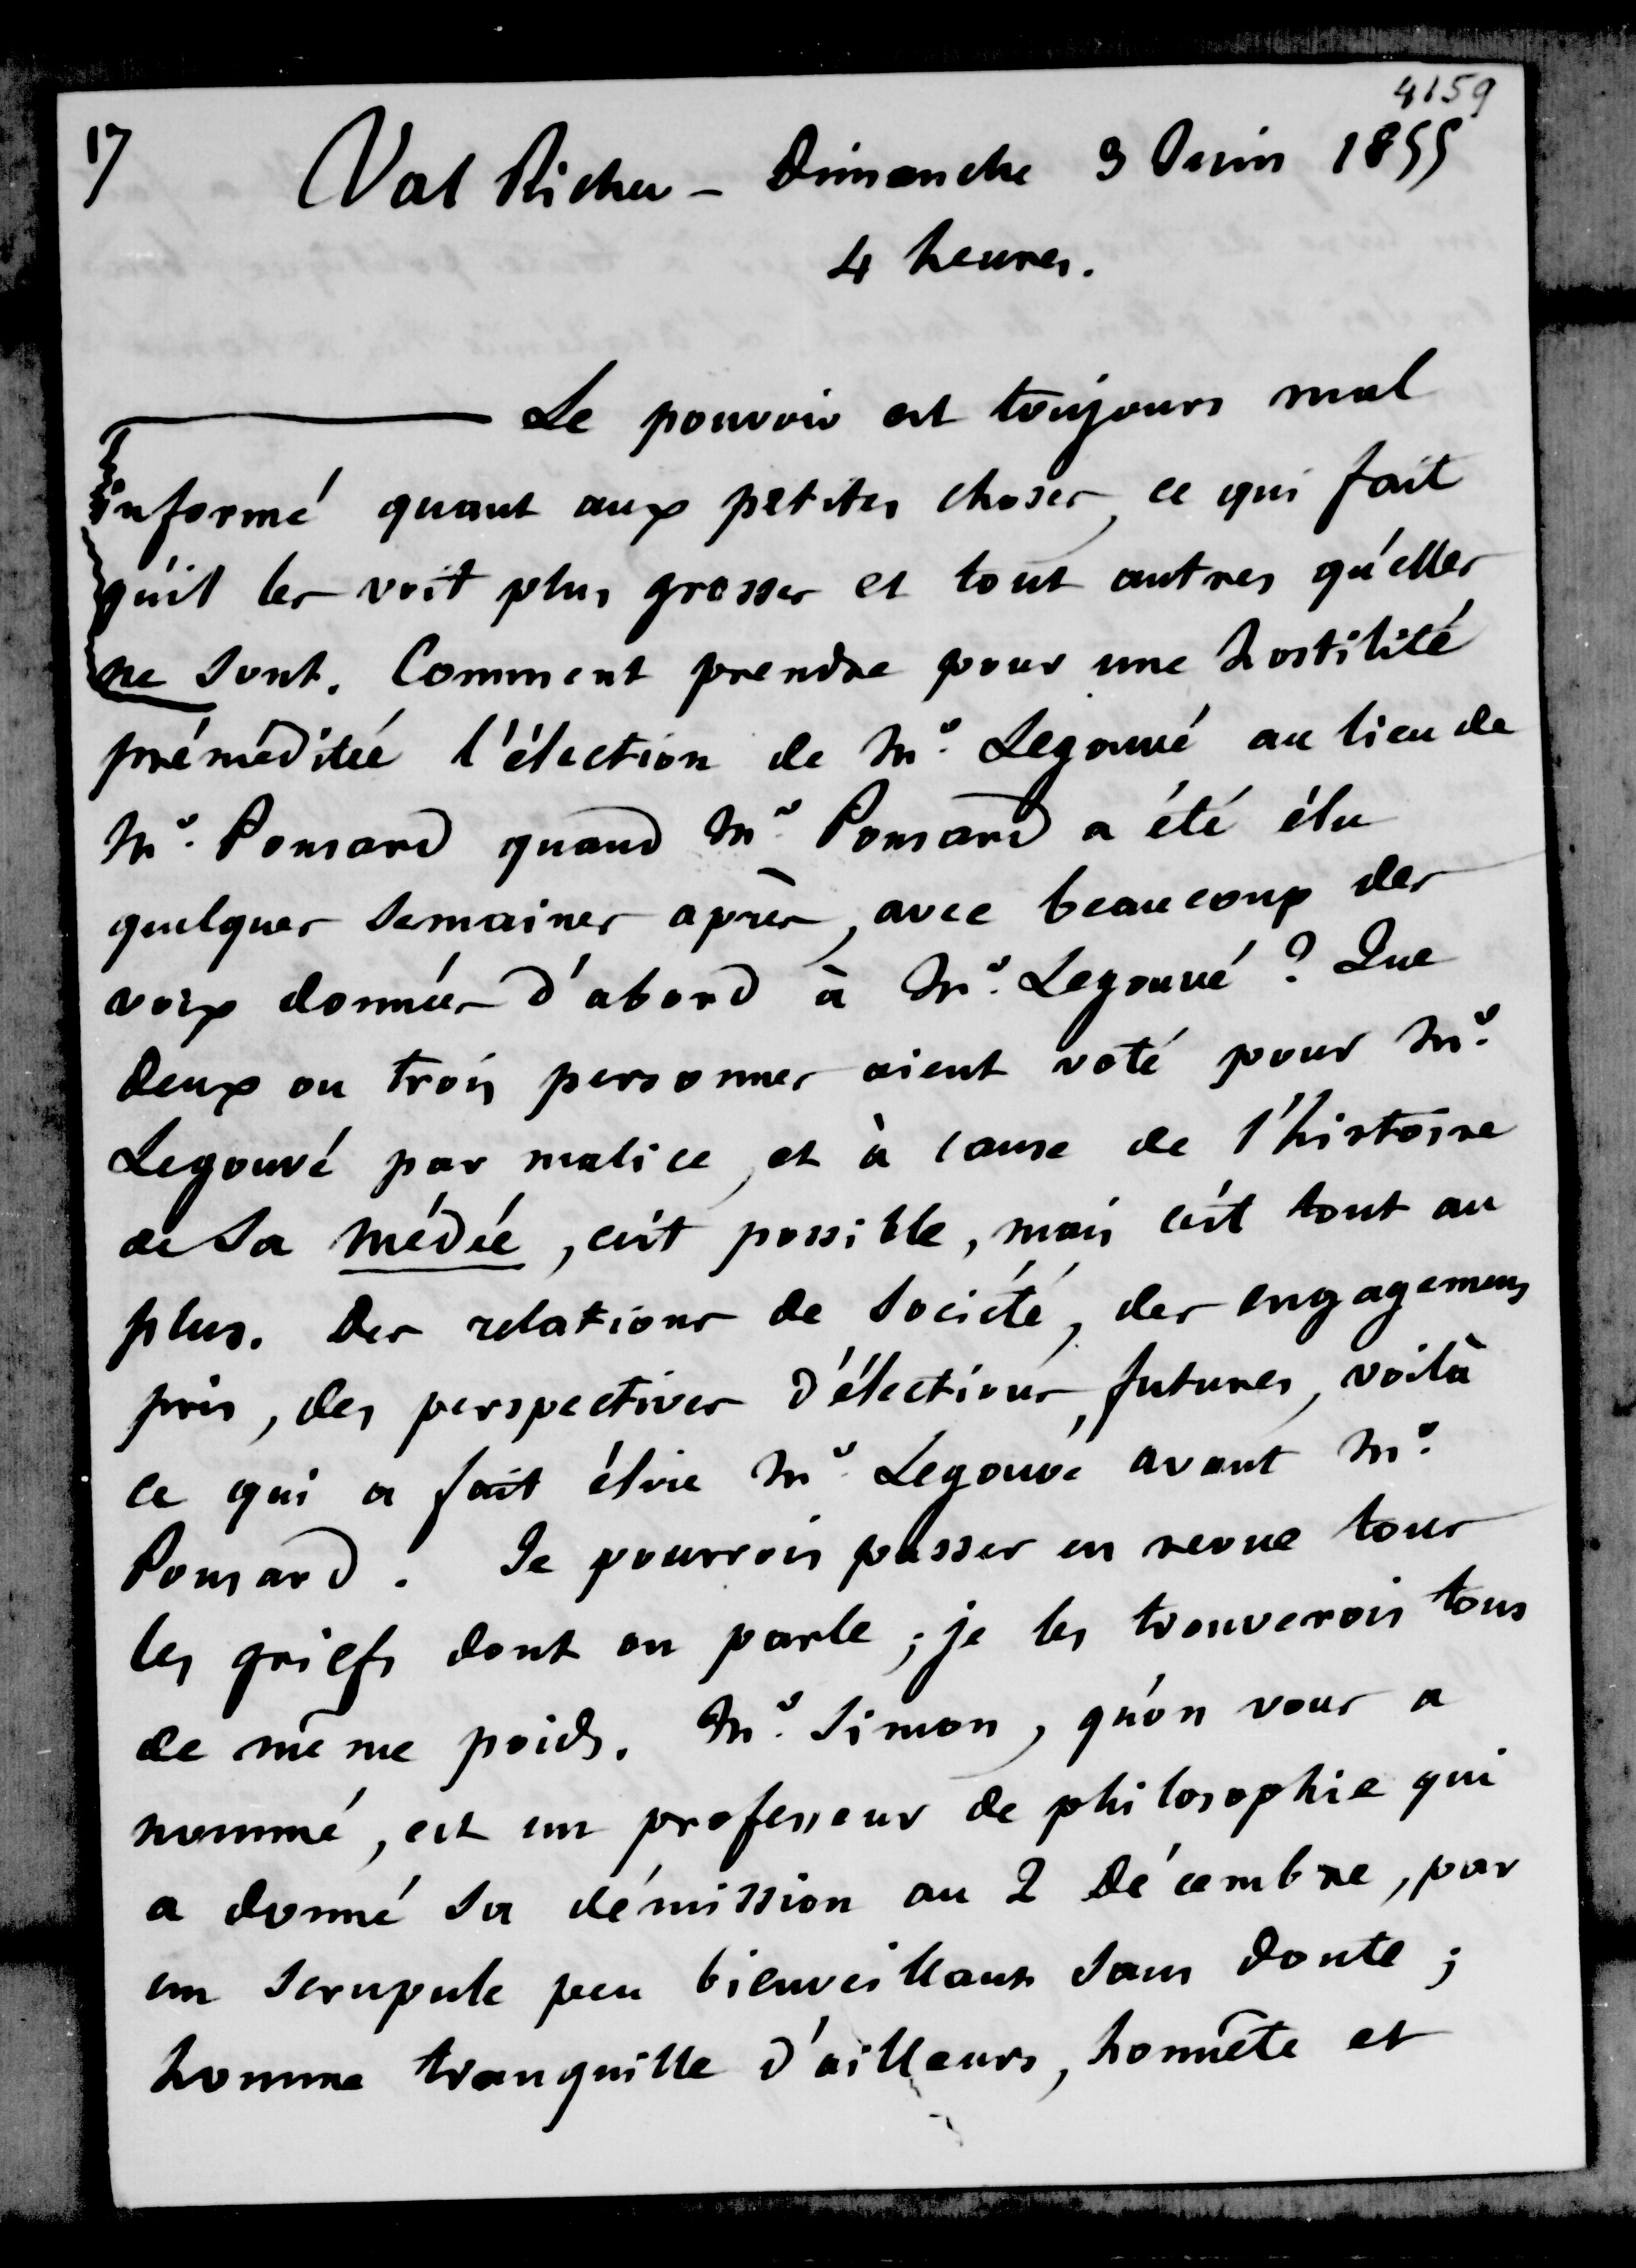 4159
17
Val Richer - Dimanche 3 Juin 1855
4 heures.
Le pouvoir est toujours mal
informé quant aux petites choses, ce qui fait
qu'il les voit plus grosses et tout autres qu'elles
ne sont. Comment prendre pour une hostilité
préméditée l'élection de Mr. Legouvé au lieu de
Mr. Ponsard quand Mr. Ponsard a été élu
quelques semaines après, avec beaucoup des
voix données d'abord à Mr. Legouvé ? Que
deux ou trois personnes aient voté pour Mr.
Legouvé par malice, et à cause de l'histoire
de sa Médée, c'est possible, mais c'est tout au
plus. Des relations de société, des engagemens
pris, des perspectives d'élections futures, voilà
ce qui a fait élire Mr. Legouvé avant Mr.
Ponsard. Je pourrois passer en revue tous
les griefs dont on parle ; je les trouverois tous
de même poids. Mr. Simon, qu'on vous a
nommé, est un professeur de philosophie qui
a donné sa démission au 2 Décembre, par
un scrupule peu bienveillant sans doute ;
homme tranquille d'ailleurs, honnête et